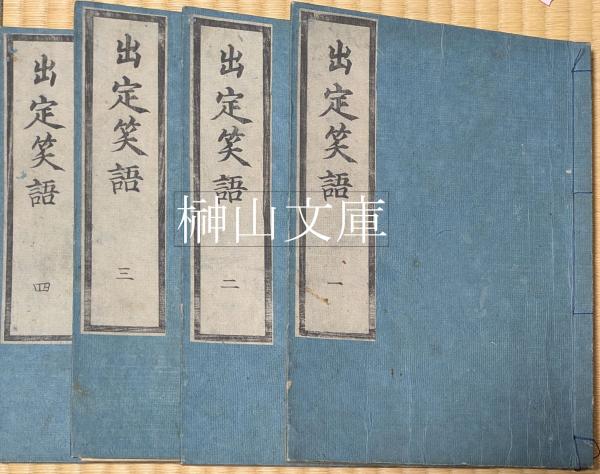 出定笑語
一
出定笑語
二
出定笑語
三
出定笑語
四
榊山文庫